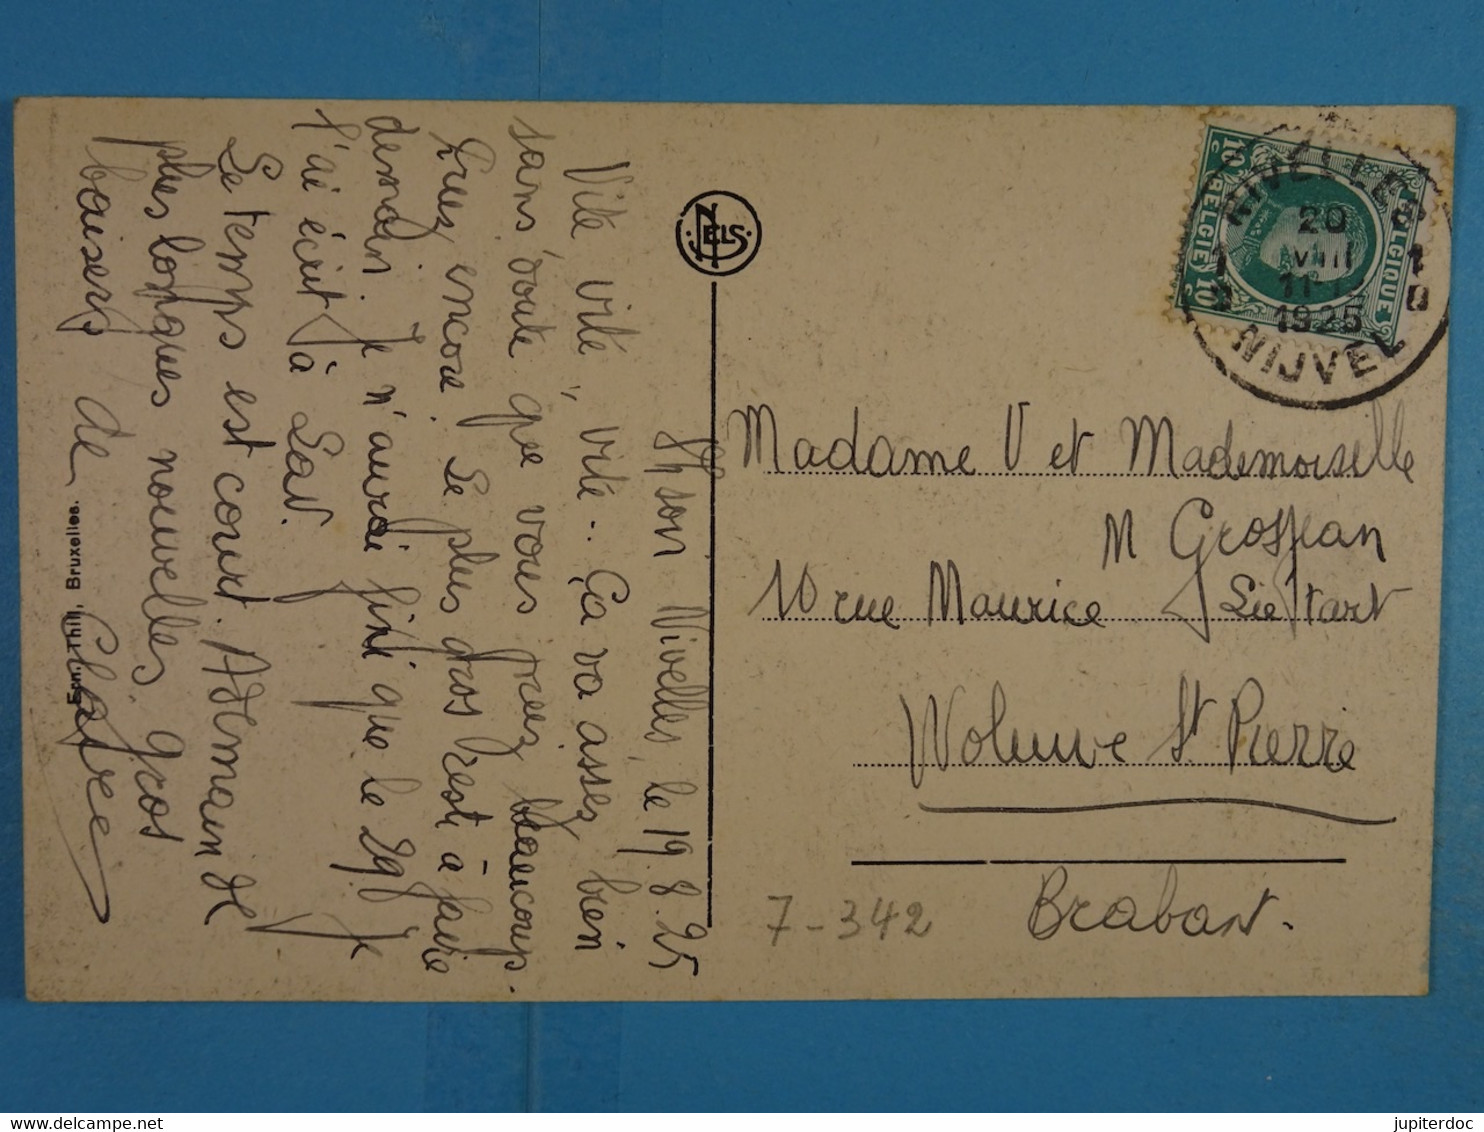 8h soir Nivelles, le 19.8.25
Vite vite, vite.. Ça va assez bien
sans doute que vous riez beaucoup.
Riez encore. Le plus gros reste à faire
demain. Je n'aurai fini que le 29. Je
l'ai écrit à
Le temps est court. A demain de
plus longues nouvelles, gros
baisers de
Ern. Thill, Bruxelles.
NELS
NIVELLES
20
VIII
1925
1 1
NIJVEL
10 c
BELGIE
BELGIQUE
10
Madame V et Mademoiselle
M Grosjean
10 rue Maurice Liétart
Woluwe St Pierre
Brabant.
7-342
delcampe.net
jupiterdoc